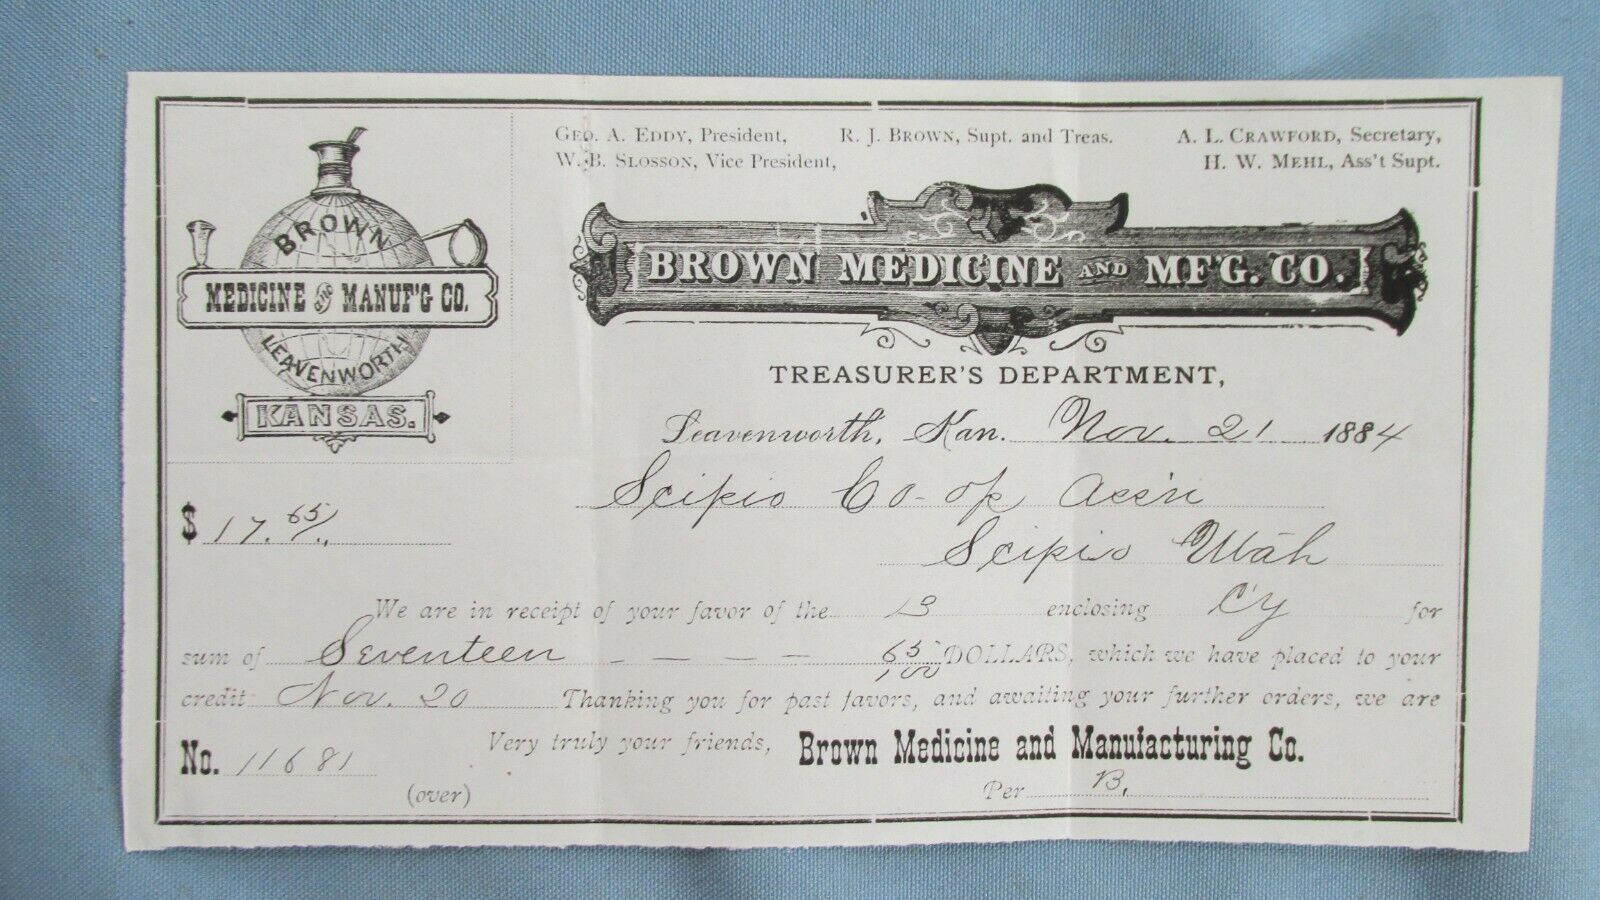 BROWN
MEDICINE AND MANUF'G CO.
LEAVENWORTH
KANSAS.
GEO. A. EDDY, President, R. J. BROWN, Supt. and Treas. A. L. CRAWFORD, Secretary,
W. B. SLOSSON, Vice President, H. W. MEHL, Ass't Supt.
BROWN MEDICINE AND MF'G. CO.
TREASURER'S DEPARTMENT,
Leavenworth, Kan. Nov. 21 1884
Scipio Co-op Ass'n
$ 17.65/
Scipio Utah
We are in receipt of your favor of the 13 enclosing C'y for
sum of Seventeen - - - - 65/100 DOLLARS, which we have placed to your
credit Nov. 20 Thanking you for past favors, and awaiting your further orders, we are
Very truly your friends, Brown Medicine and Manufacturing Co.
No. 11681
(over) Per B.